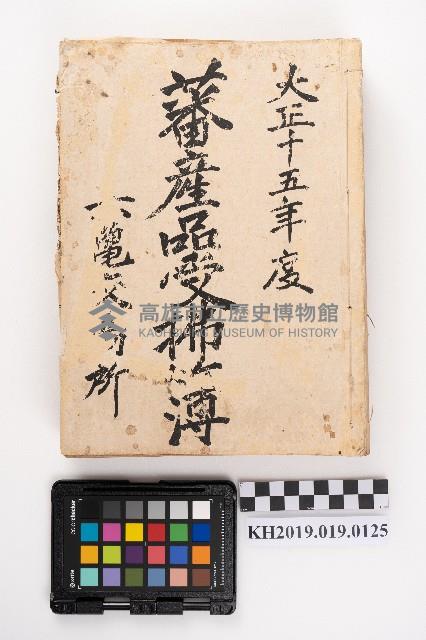 大正十五年度
蕃産品受拂簿
六龜交易所
高雄市立歷史博物館
KAOHSIUNG MUSEUM OF HISTORY
KH2019.019.0125